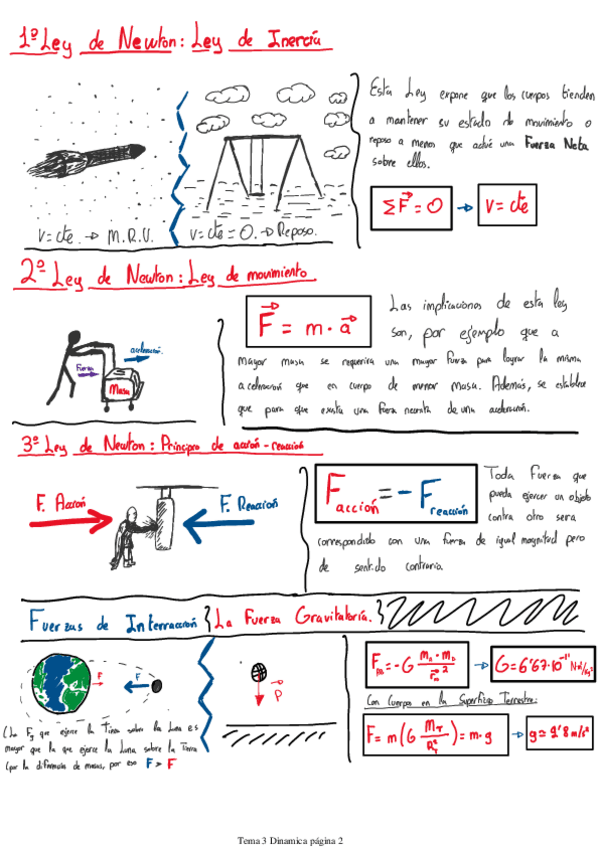 1º Ley de Newton: Ley de Inercia
v=cte. → M.R.U.
v=cte=0. → Reposo.
Esta Ley expone que los cuerpos tienden
a mantener su estado de movimiento o
reposo a menos que actué una Fuerza Neta
sobre ellos.
ΣF⃗ = 0 → v = cte
2º Ley de Newton: Ley de movimiento
aceleración
Fuerza
Masa
F⃗ = m · a⃗
Las implicaciones de esta ley
son, por ejemplo que a
mayor masa se requerira una mayor fuerza para lograr la misma
aceleracion que en cuerpo de menor masa. Además, se establece
que para que exista una fuerza necesita de una aceleración.
3º Ley de Newton: Principio de acción-reacción
F. Acción
F. Reacción
F acción = - F reacción
Toda fuerza que
pueda ejercer un objeto
contra otro sera
correspondido con una fuerza de igual magnitud pero
de sentido contrario.
Fuerzas de Interracción
La Fuerza Gravitatoria.
F
F
(La Fg que ejerce la Tierra sobre la Luna es
mayor que la que ejerce la Luna sobre la Tierra
(por la diferencia de masas, por eso F > F
P⃗
= -G
G = 6'67·10⁻¹¹ N·m²/kg²
Con Cuerpos en la Superficie Terrestre:
F = m (G M_T / R_T²) = m · g → g ≃ 9'8 m/s²
Tema 3 Dinamica página 2